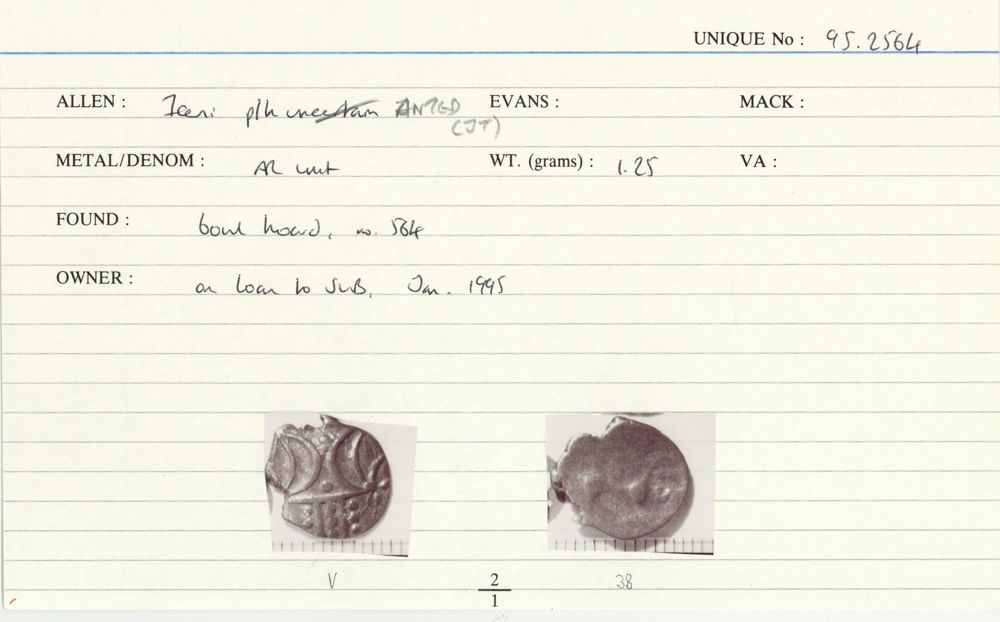 UNIQUE No : 95.2564
ALLEN : Iceni p/h uncertain ANTED EVANS : MACK :
(JT)
METAL/DENOM : AR unit WT. (grams) : 1.25 VA :
FOUND : bowl hoard, no. 564
OWNER : on loan to SUB, Jan. 1995
V 2 38
1